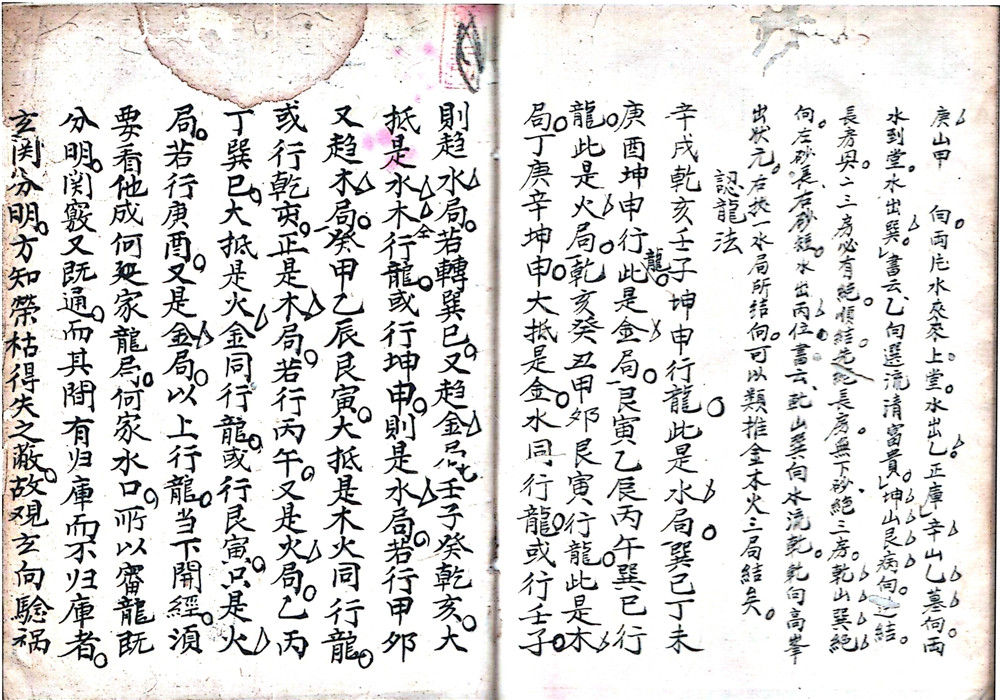 庚山甲向両片水來來上堂水出乙正庫辛山乙墓向両
水到堂水出巽書云乙向選流清富貴坤山艮病向逆結
長房兴二三房必有絕順結先絕長房無下砂絕三房乾山巽絕
向左砂長右砂短水出丙位書云乾山巽向水流乾乾向高峯
出狀元右挨一水局所結向可以類推金木火三局結矣
認龍法
辛戌乾亥壬子坤申行龍此是水局巽巳丁未
庚酉坤申行龍此是金局艮寅乙辰丙午巽巳行
龍此是火局乾亥癸丑甲夘艮寅行龍此是木
局丁庚辛坤申大抵是金水同行龍或行壬子
則趋水局若轉巽巳又趋金局壬子癸乾亥大
抵是水木仝行龍或行坤申則是水局若行甲夘
又趋木局癸甲乙辰艮寅大抵是木火同行龍
或行乾亥正是木局若行丙午又是火局乙丙
丁巽巳大抵是火金同行龍或行艮寅只是火
局若行庚酉又是金局以上行龍当下開經湏
要看他成何家龍局何家水口所以審龍既
分明関竅又既通而其間有归庫而不归庫者
玄関分明方知榮枯得失之蔽故观玄向驗禍